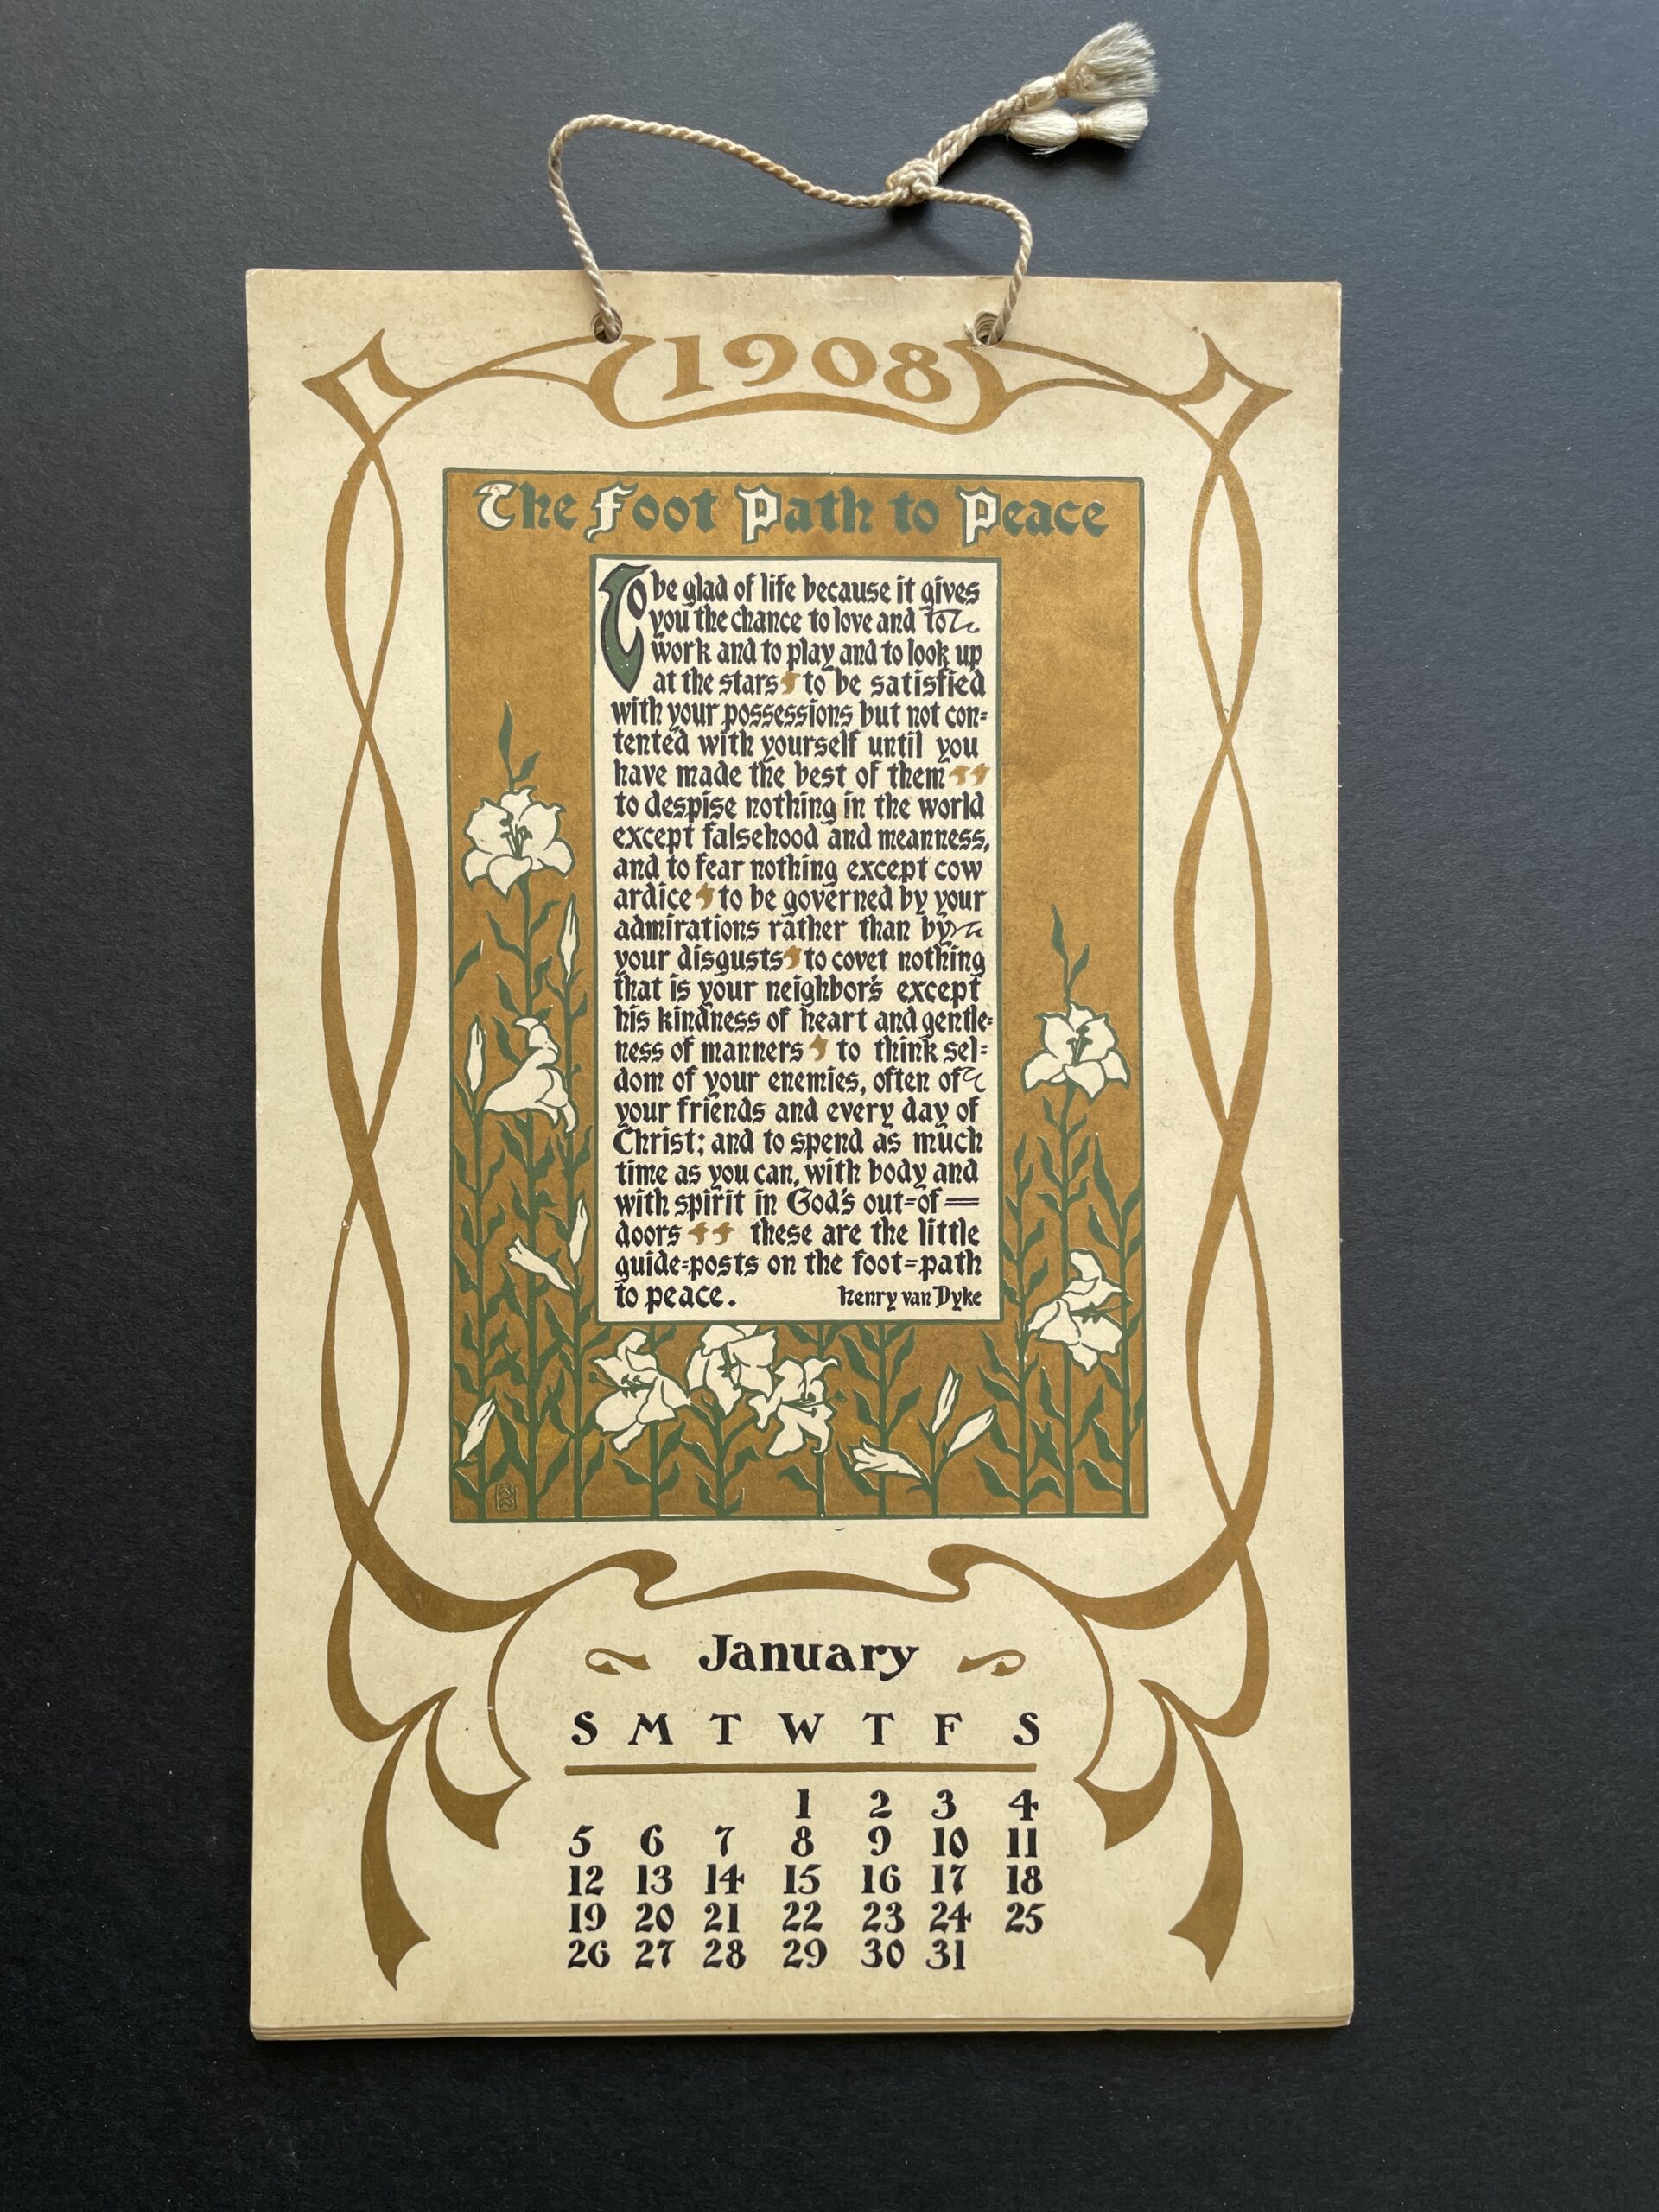 1908
The Foot Path to Peace
To be glad of life because it gives
you the chance to love and to
work and to play and to look up
at the stars to be satisfied
with your possessions but not con=
tented with yourself until you
have made the best of them
to despise nothing in the world
except falsehood and meanness,
and to fear nothing except cow
ardice to be governed by your
admirations rather than by
your disgusts to covet nothing
that is your neighbor's except
his kindness of heart and gentle=
ness of manners to think sel=
dom of your enemies, often of
your friends and every day of
Christ; and to spend as much
time as you can, with body and
with spirit in God's out=of=
doors these are the little
guide=posts on the foot=path
to peace. Henry van Dyke
January
S M T W T F S
1 2 3 4
5 6 7 8 9 10 11
12 13 14 15 16 17 18
19 20 21 22 23 24 25
26 27 28 29 30 31